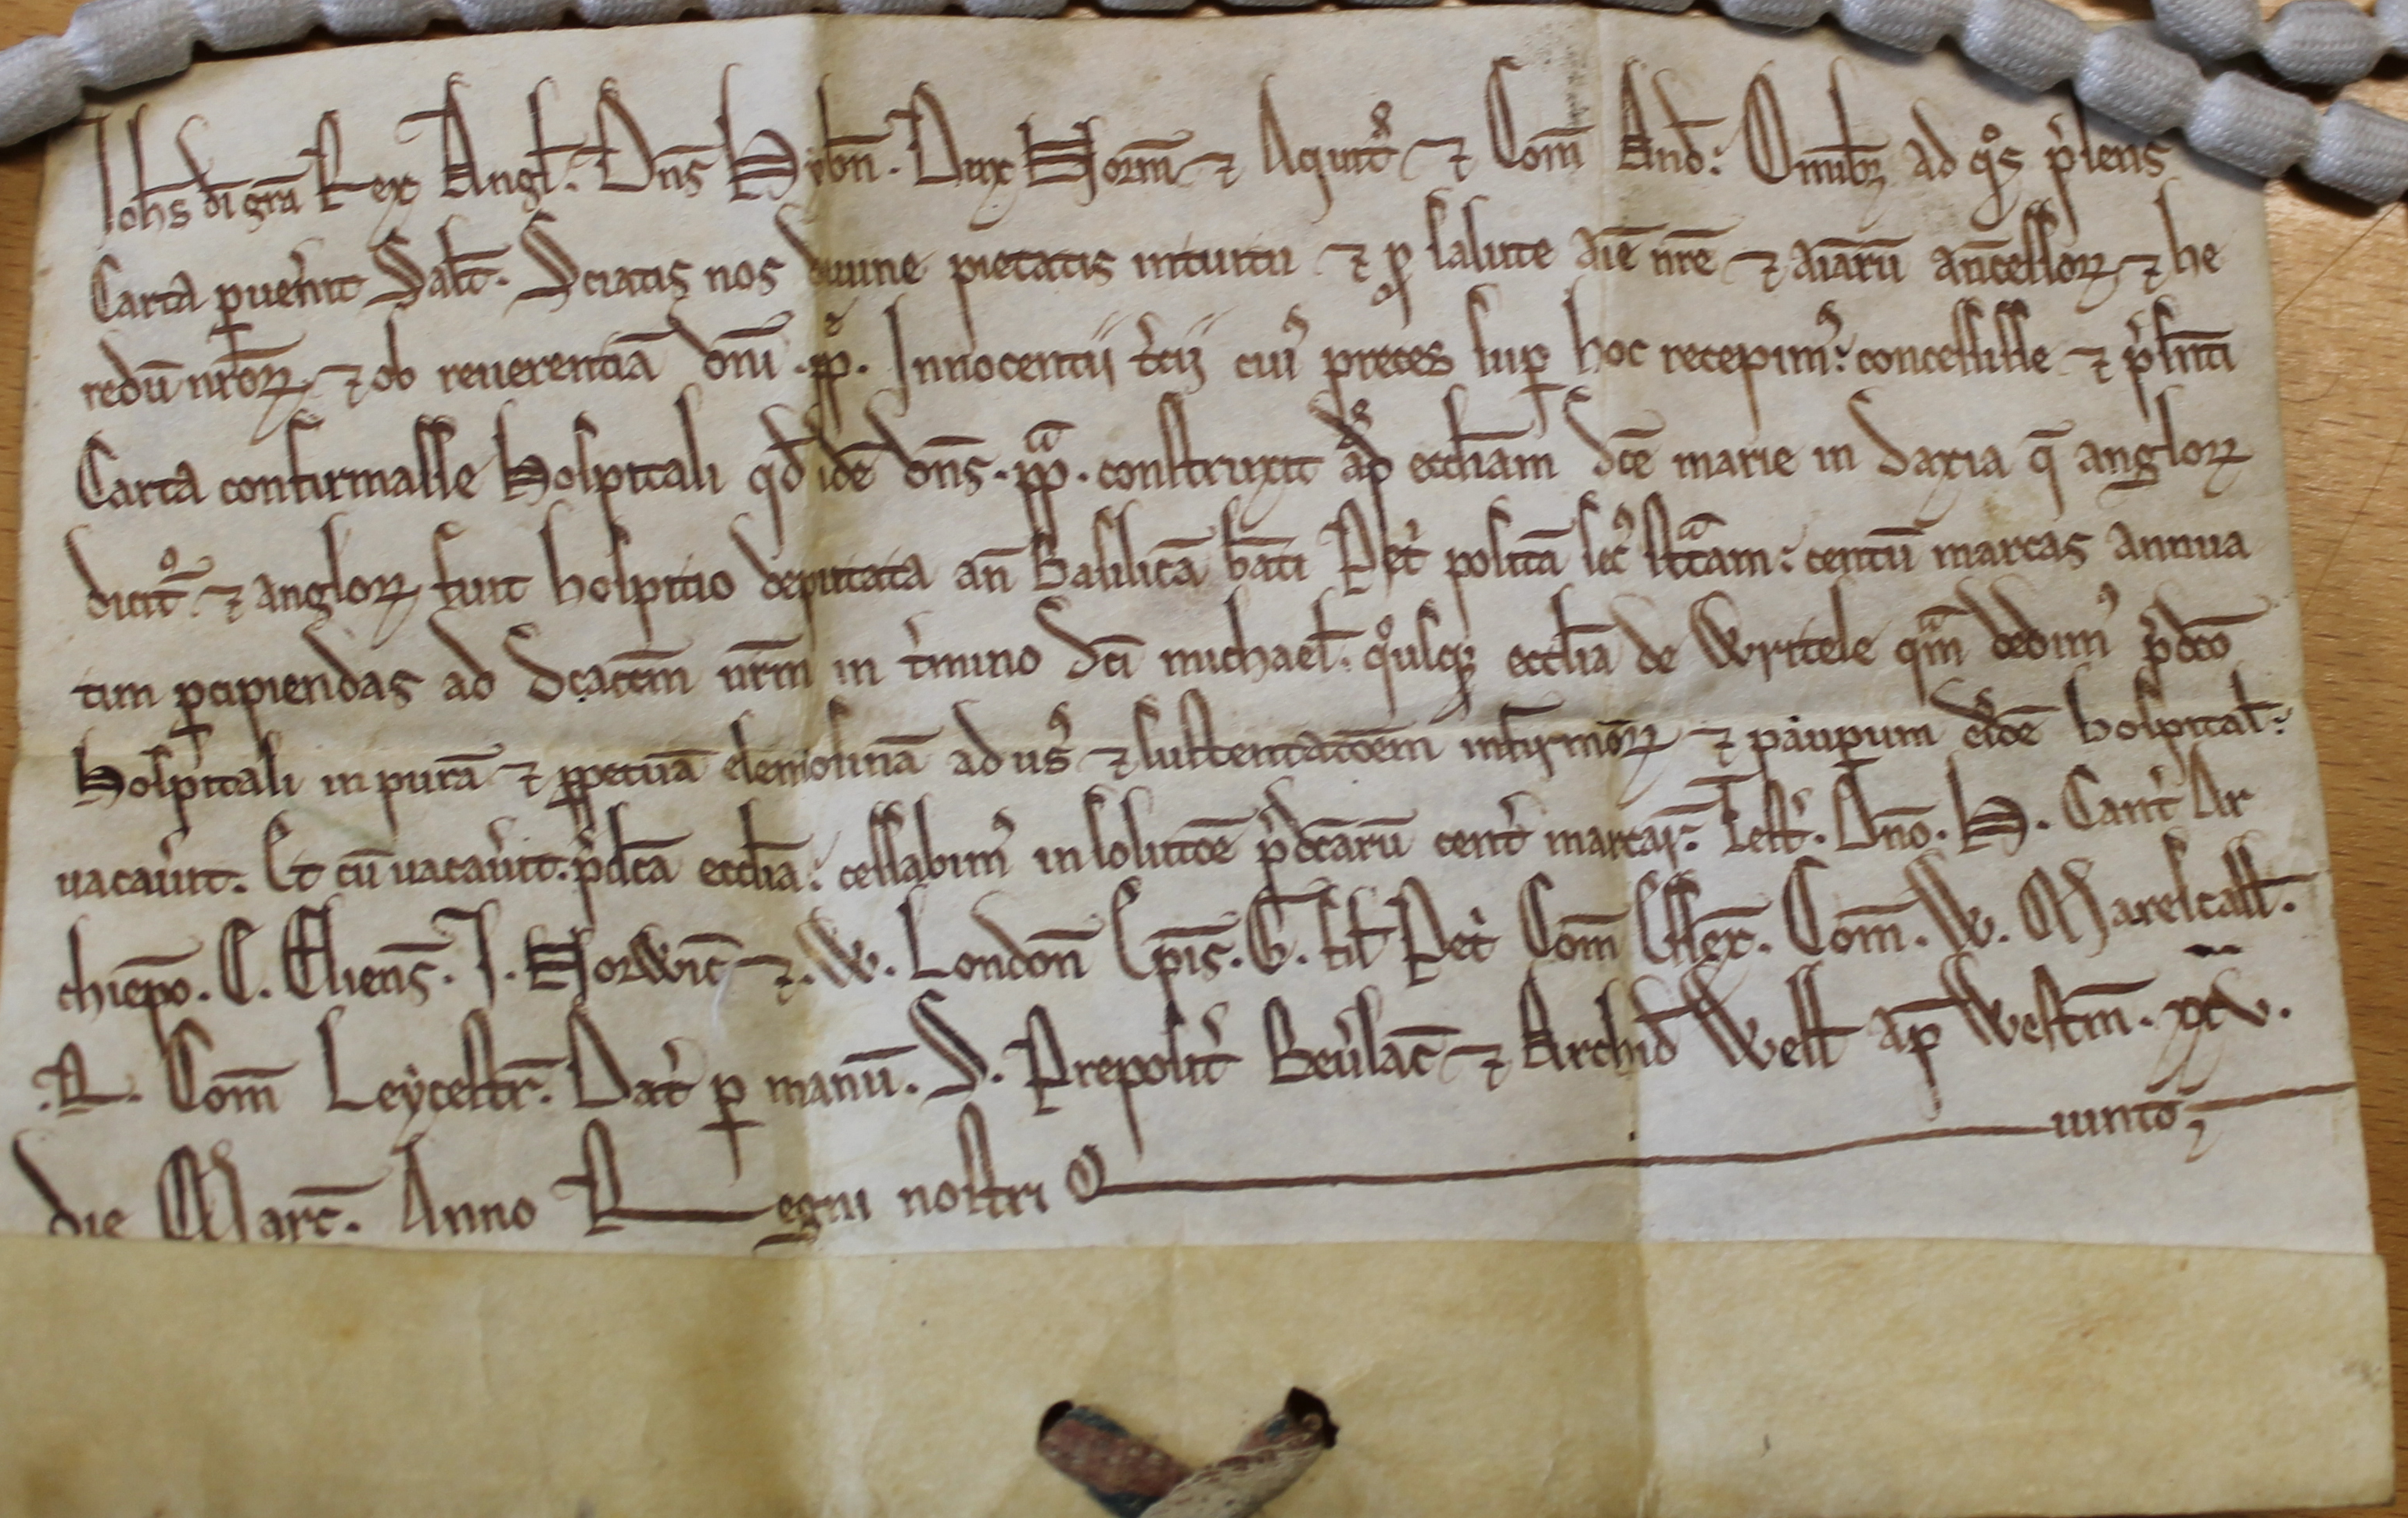 Ioh̄s dī gr̄a Rex Angl̄. Dn̄s Hyb̄n. Dux Norm̄ ⁊ Aquit̄ ⁊ Com̄ And̄. Omnibꝫ ad qͦs p̓sens
Carta ꝑuen̓it Sal̄t. Sciatis nos diuine pietatis intuitu ⁊ ꝓ salute aīe nr̄e ⁊ aīarū an̄cessoꝝ ⁊ he
redū nr̄oꝝ ⁊ ob reuerentiā dn̄i .pp̄. Innocentii t̓cij cuiꝰ preces suꝑ hoc recepimꝰ. concessisse ⁊ p̓sn̄ti
Carta confirmasse Hospitali qd̄ idē dn̄s .pp̄. construxit ap̄d eccl̄iam sc̄e marie in Saxia q̄ angloꝝ
dicit̄ ⁊ angloꝝ fuit hospitio deputata an̄ Basilicā bāti Pet̓ positā secꝰ st̄tam. centū marcas annua
tim ꝑcipiendas ad Sc̄acc̄m nr̄m in t̓mino Sc̄i michael̄. qͦusqꝫ eccl̄ia de Writele qᵃm dedimꝰ p̓dc̄o
Hospitali in purā ⁊ ꝑpetuā elemosinā ad usꝰ ⁊ sustentac̄oem infirmoꝝ ⁊ pauꝑum eiꝰdē hospital̄.
uacau̓it. Et cū uacau̓it. p̓dc̄a eccl̄ia. cessabimꝰ in soluc̄oe p̓dc̄arū cent̄ marcar̄. Test̓. Dn̄o. H. Cant̓ Ar
chiep̄o. E. Eliens̄. J. Norwic̄ ⁊. W. London̄ Ep̄is. G. fil̄ Pet̓ Com̄ Essex̄. Com̄. W. Marescall̄.
.R. Com̄ Leycestr̄. Dat̓ ꝑ manū. S. Preposit̓ Beu̓lac̄ ⁊ Archid̄ Well̄ ap̄ Westm̄. xxv.
die Marc̄. Anno Regni nostri Quinto;